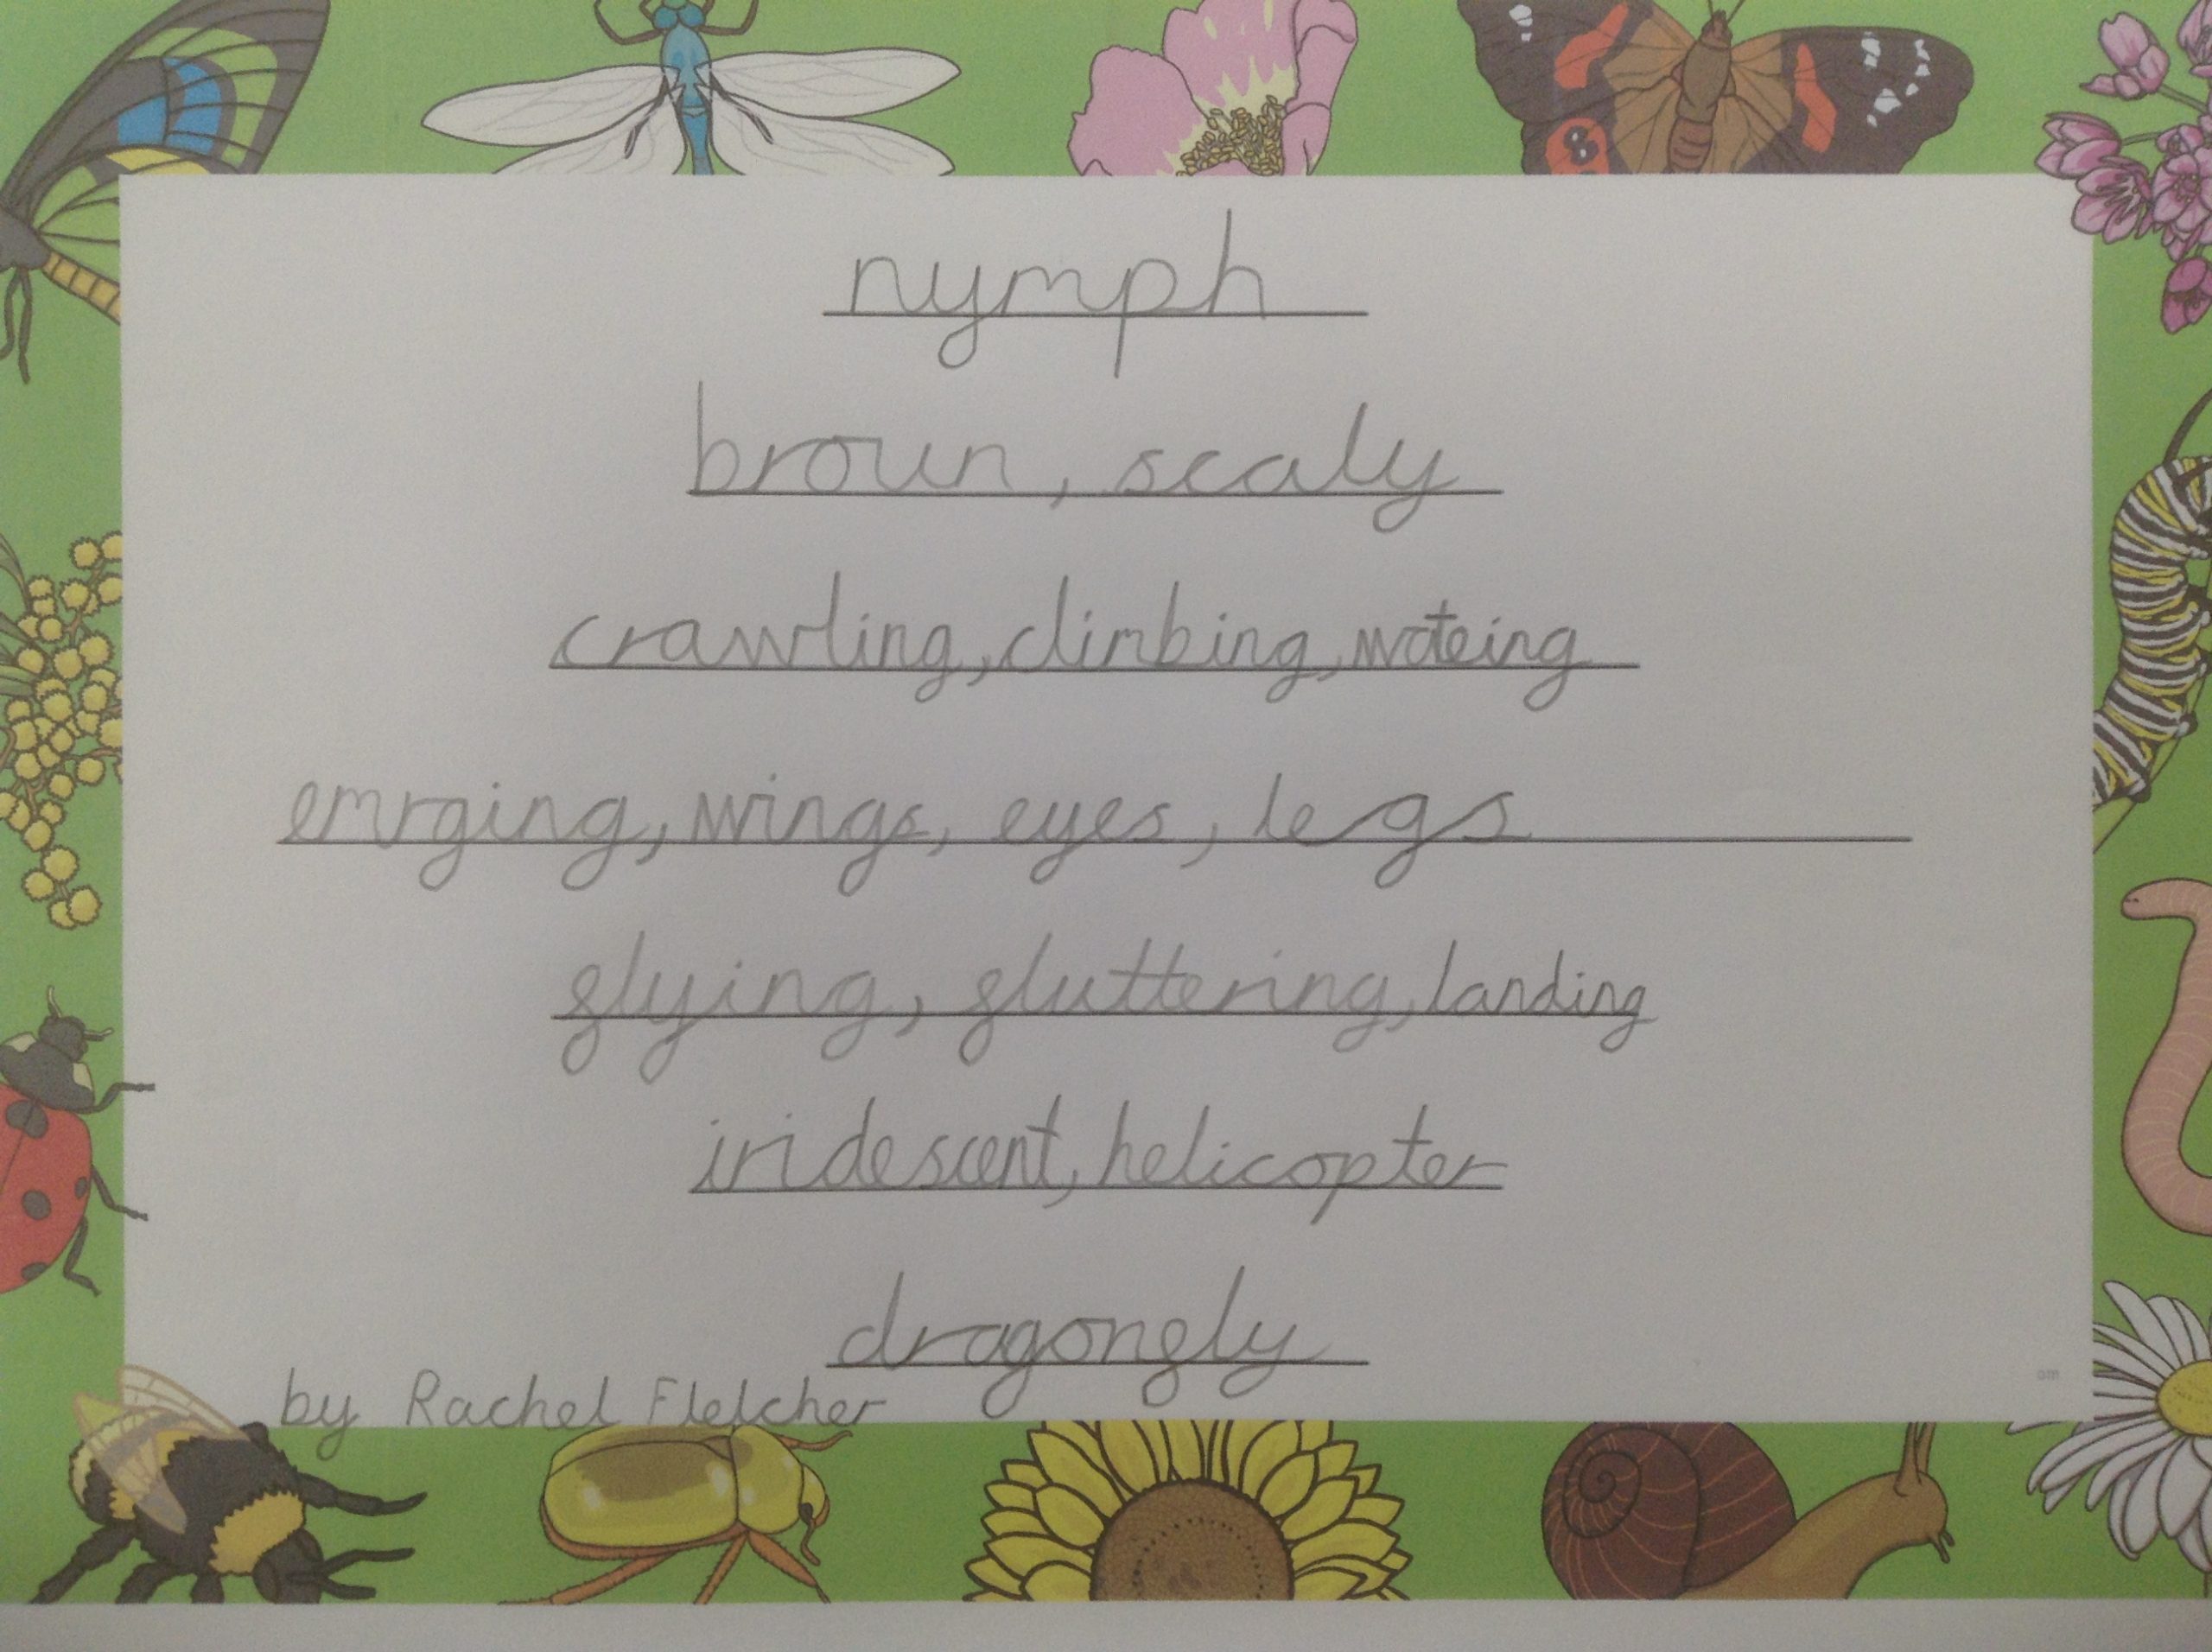 nymph
brown, scaly
crawling, climbing, wateing
emrging, wings, eyes, legs
flying, fluttering, landing
iridescent, helicopter
dragonfly
by Rachel Fletcher
om